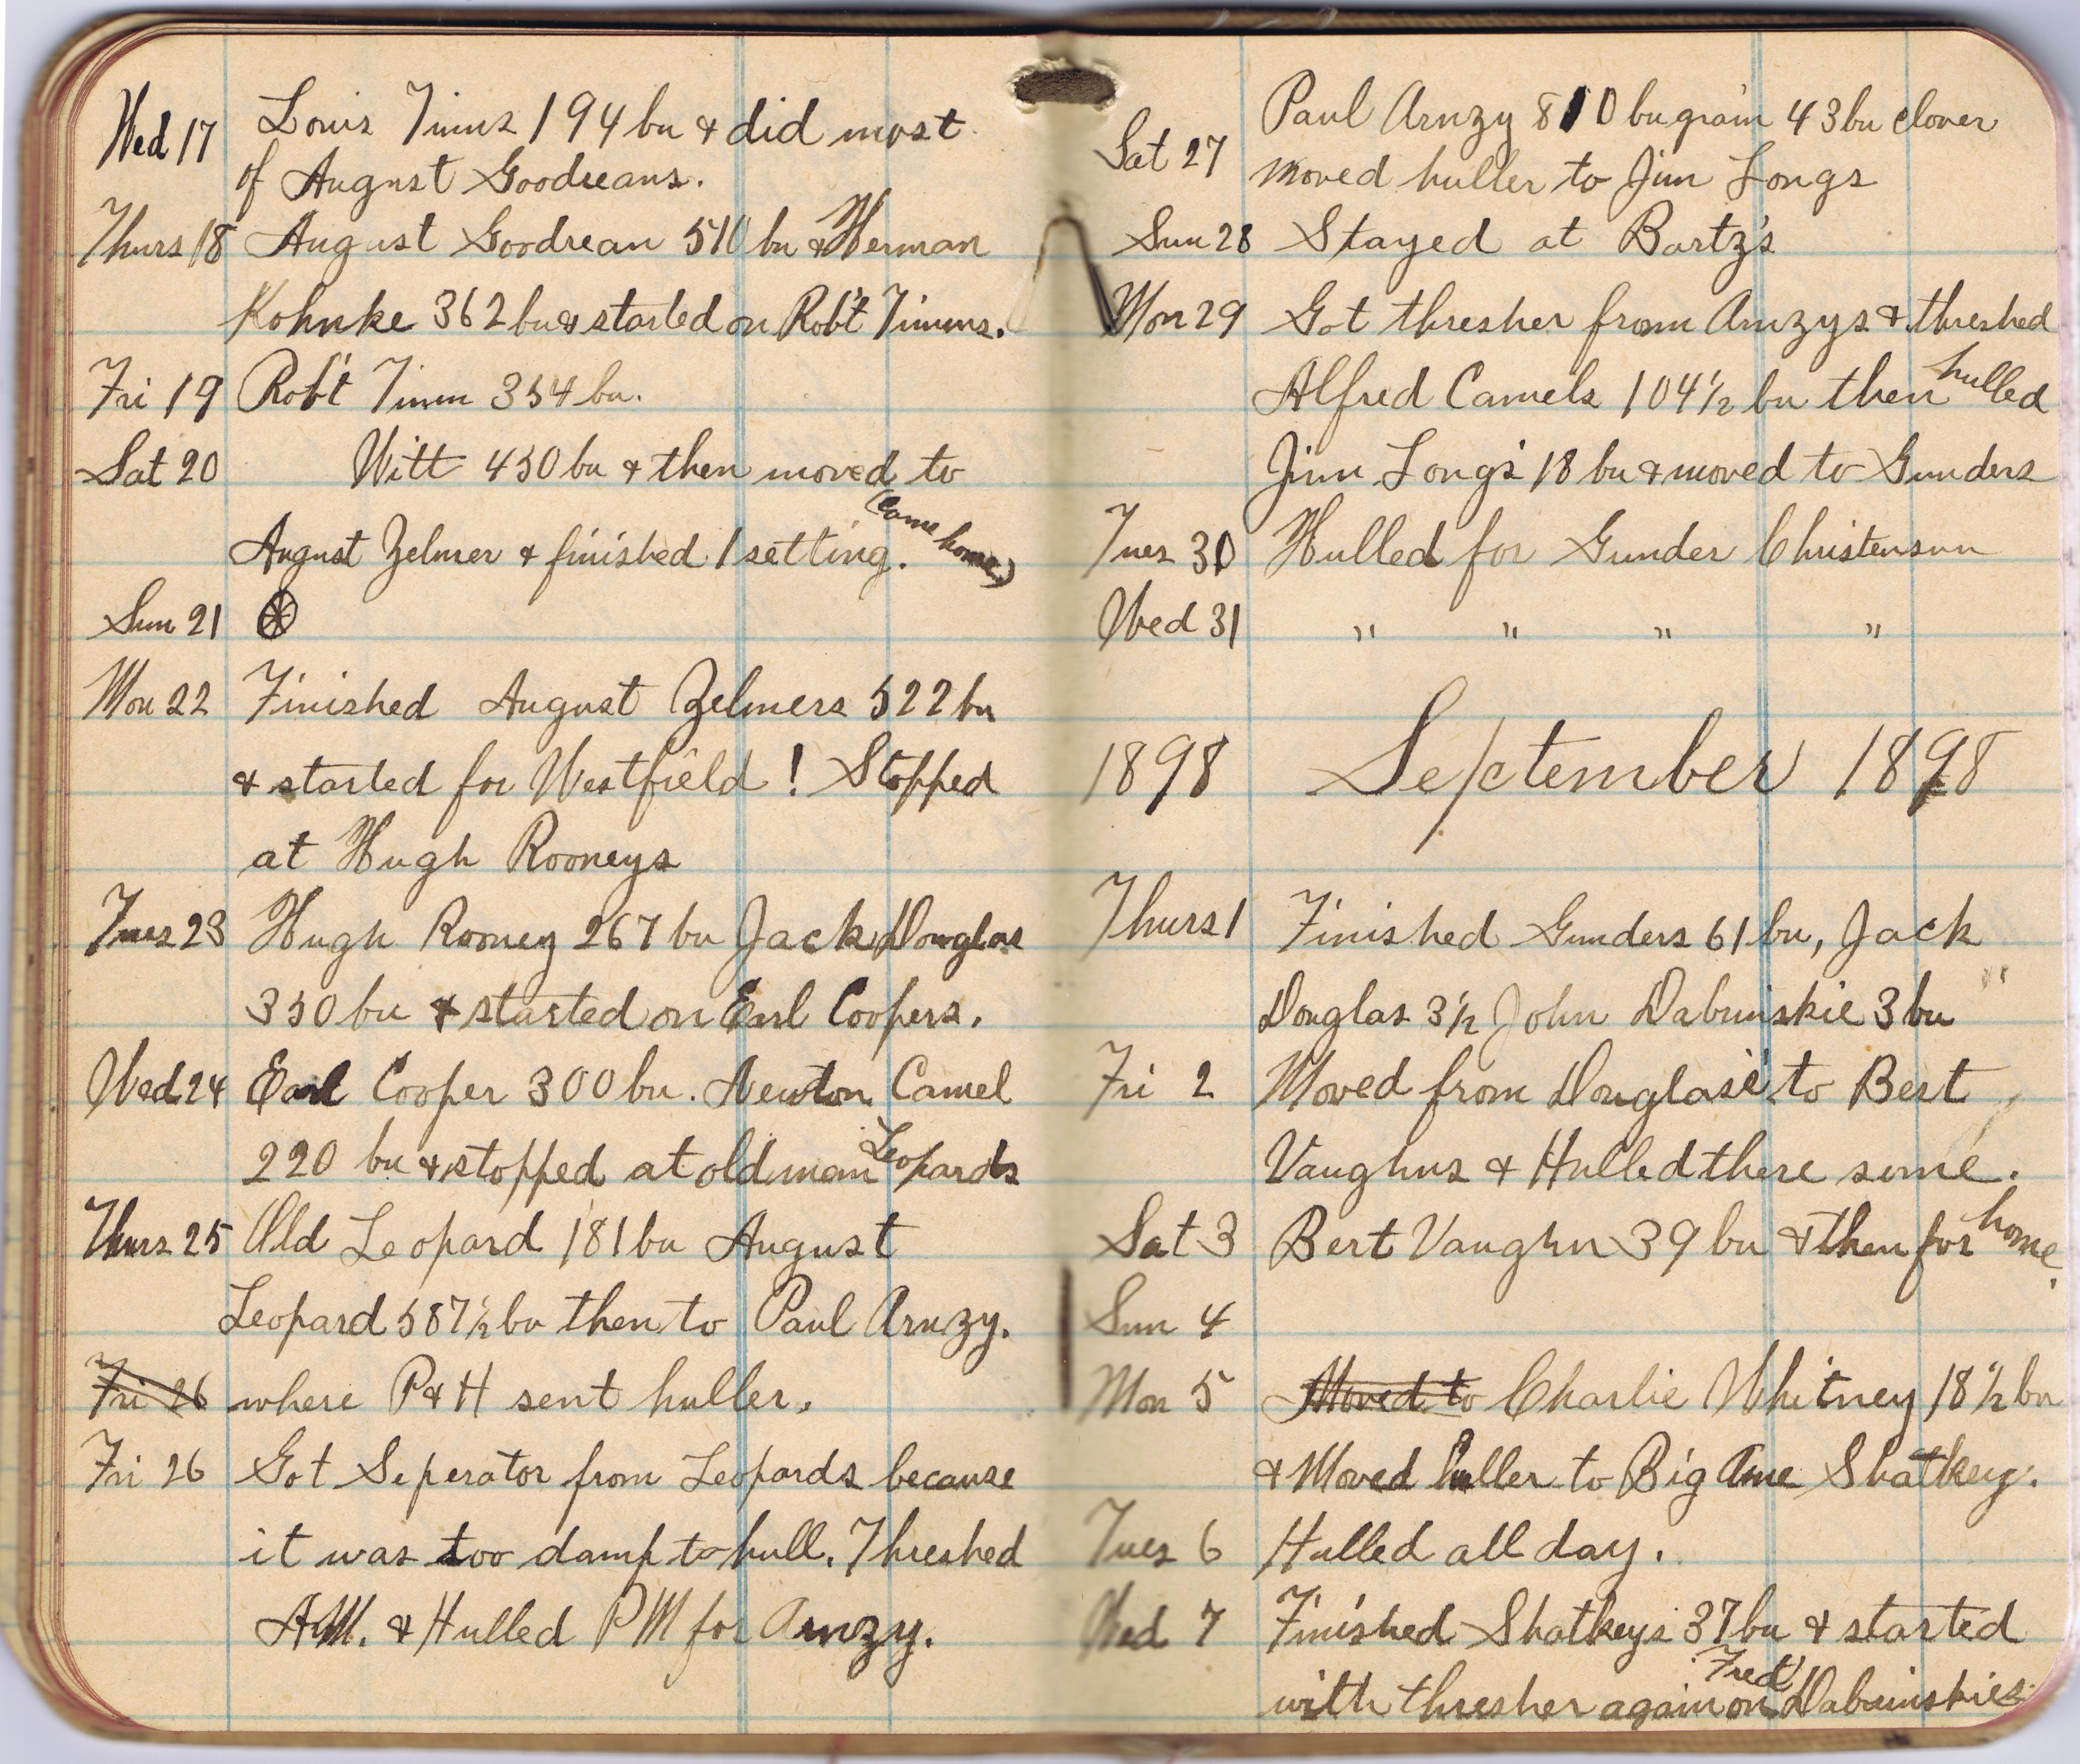 Wed 17 Louis Timms 194 bu & did most
of August Goodreans.
Thurs 18 August Goodrean 510 bu & Herman
Kohnke 362 bu & started on Rob't Timms.
Fri 19 Rob't Timm 354 bu.
Sat 20 Witt 450 bu & then moved to
August Zelmer & finished 1 setting. (Came home)
Sun 21
Mon 22 Finished August Zelmers 522 bu
& started for Westfield! Stopped
at Hugh Rooneys
Tues 23 Hugh Rooney 267 bu Jack Douglas
350 bu & started on Earl Coopers.
Wed 24 Earl Cooper 300 bu. Newton Camel
220 bu & stopped at old man Leopards
Thurs 25 Old Leopard 181 bu August
Leopard 587 1/2 bu then to Paul Arnzy.
Fri 26 where P & H sent huller.
Fri 26 Got Seperator from Leopards because
it was too damp to hull. Threshed
A.M. & Hulled PM for Arnzy.
Paul Arnzy 810 bu grain 43 bu clover
Sat 27 moved huller to Jim Longs
Sun 28 Stayed at Bartz's
Mon 29 Got thresher from Arnzys & threshed
Alfred Camels 104 1/2 bu then hulled
Jim Long's 18 bu & moved to Gunders
Tues 30 Hulled for Gunder Christenson
Wed 31 " " " "
1898 September 1898
Thurs 1 Finished Gunders 61 bu, Jack
Douglas 3 1/2 John Dabruiskie 3 bu "
Fri 2 Moved from Douglas's to Bert
Vaughns & Hulled there some.
Sat 3 Bert Vaughn 39 bu & then for home.
Sun 4
Mon 5 Moved to Charlie Whitney 18 1/2 bu
& Moved huller to Big Ame Shatkey.
Tues 6 Hulled all day.
Wed 7 Finished Shatkeys 37 bu & started
with thresher again on Fred Dabruiskies